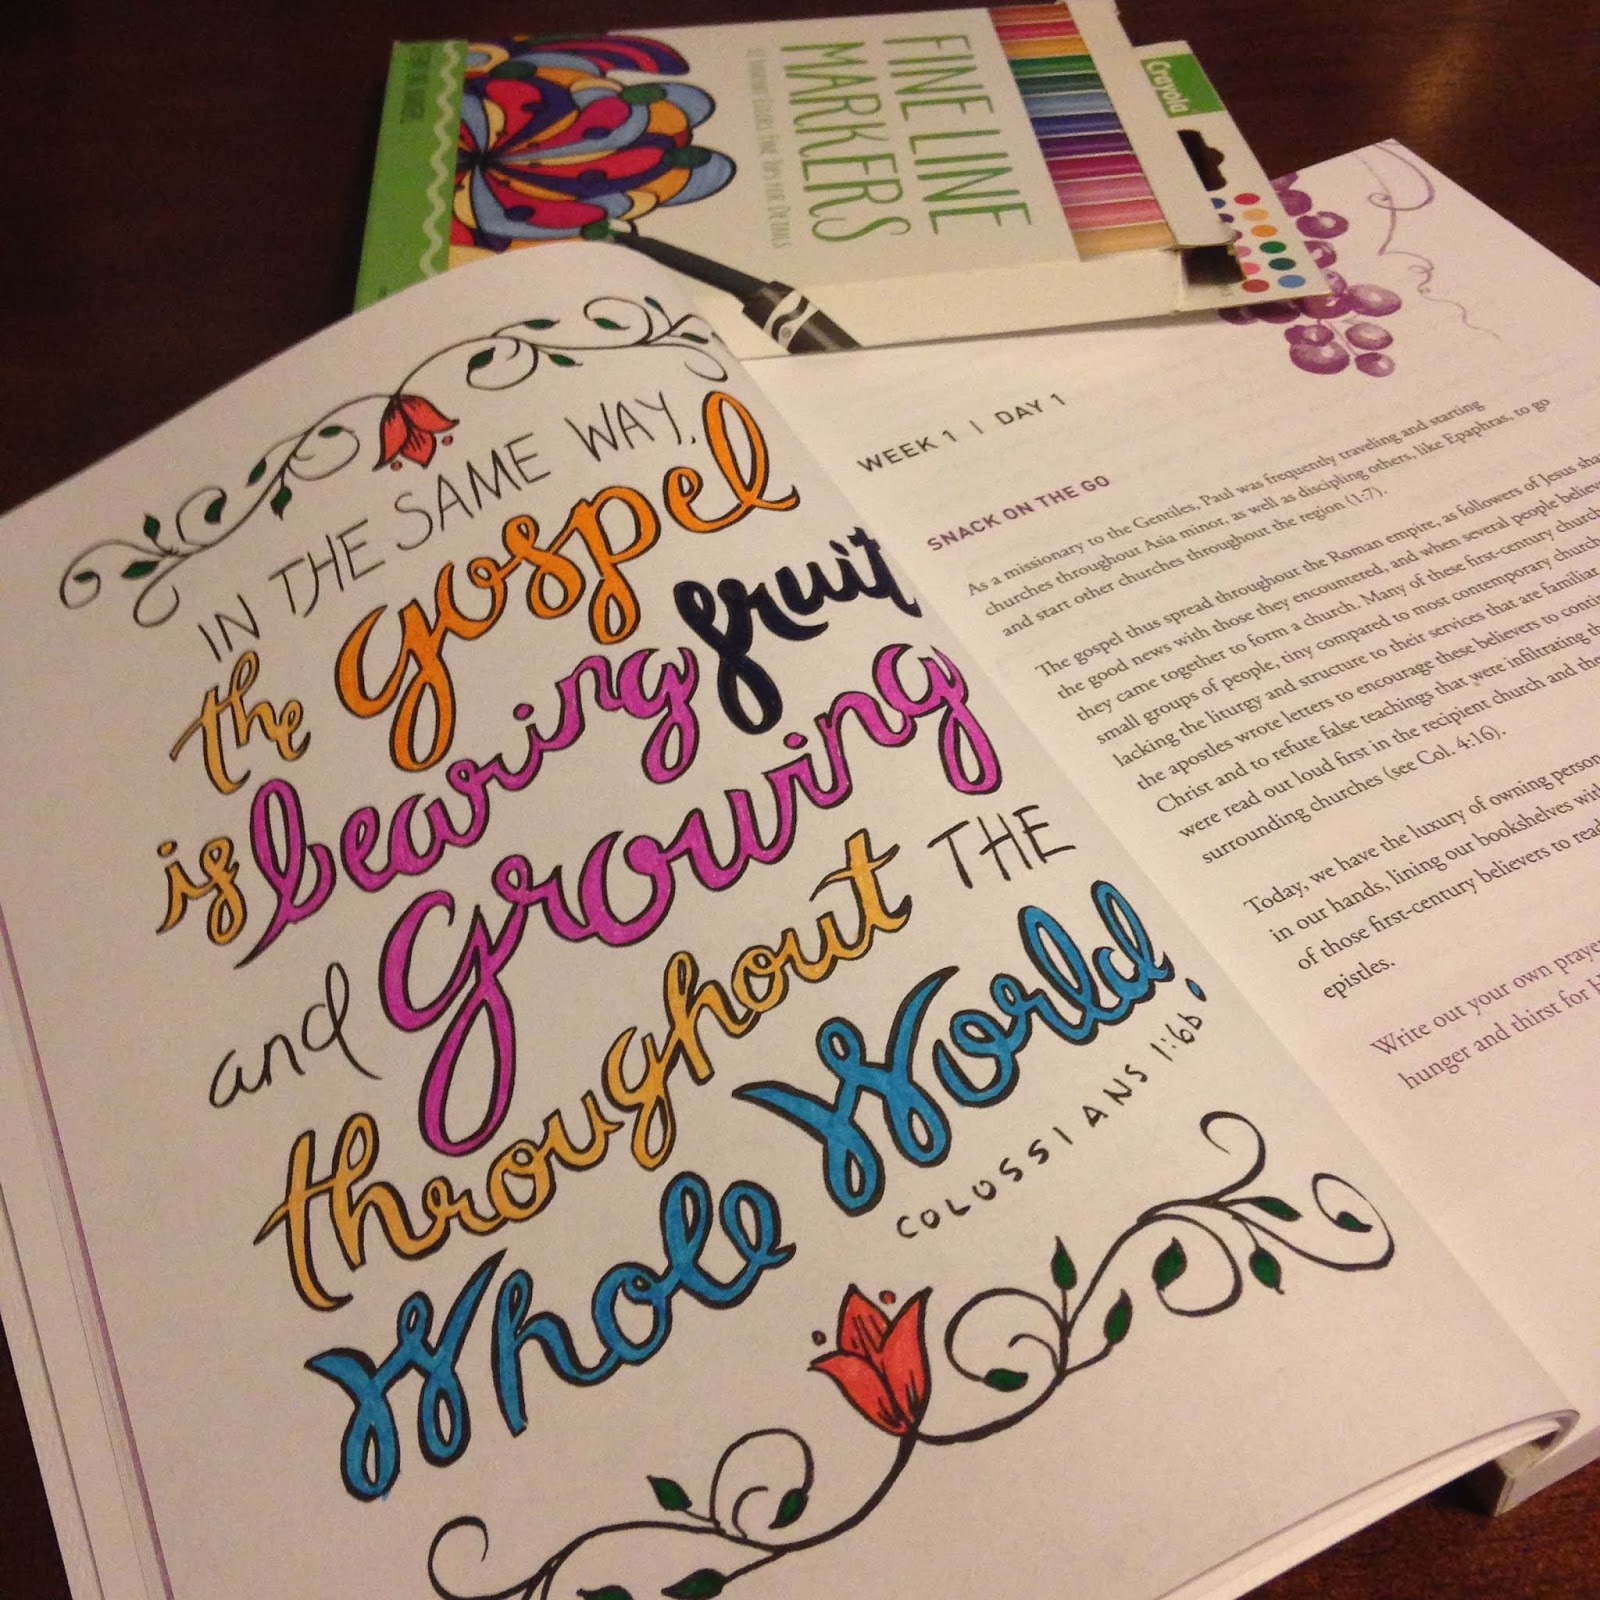 Crayola
FINE LINE
MARKERS
IN THE SAME WAY,
the gospel
is bearing fruit
and growing
throughout THE
whole world.
COLOSSIANS 1:6b
WEEK 1 | DAY 1
SNACK ON THE GO
As a missionary to the Gentiles, Paul was frequently traveling and starting
churches throughout Asia minor, as well as discipling others, like Epaphras, to go
and start other churches throughout the region (1:7).
The gospel thus spread throughout the Roman empire, as followers of Jesus
the good news with those they encountered, and when several people
they came together to form a church. Many of these first-century
small groups of people, tiny compared to most contemporary
lacking the liturgy and structure to their services that are familiar
the apostles wrote letters to encourage these believers to
Christ and to refute false teachings that were infiltrating
were read out loud first in the recipient church and
surrounding churches (see Col. 4:16).
Today, we have the luxury of owning
in our hands, lining our bookshelves
of those first-century believers to
epistles.
Write out your own
hunger and thirst for